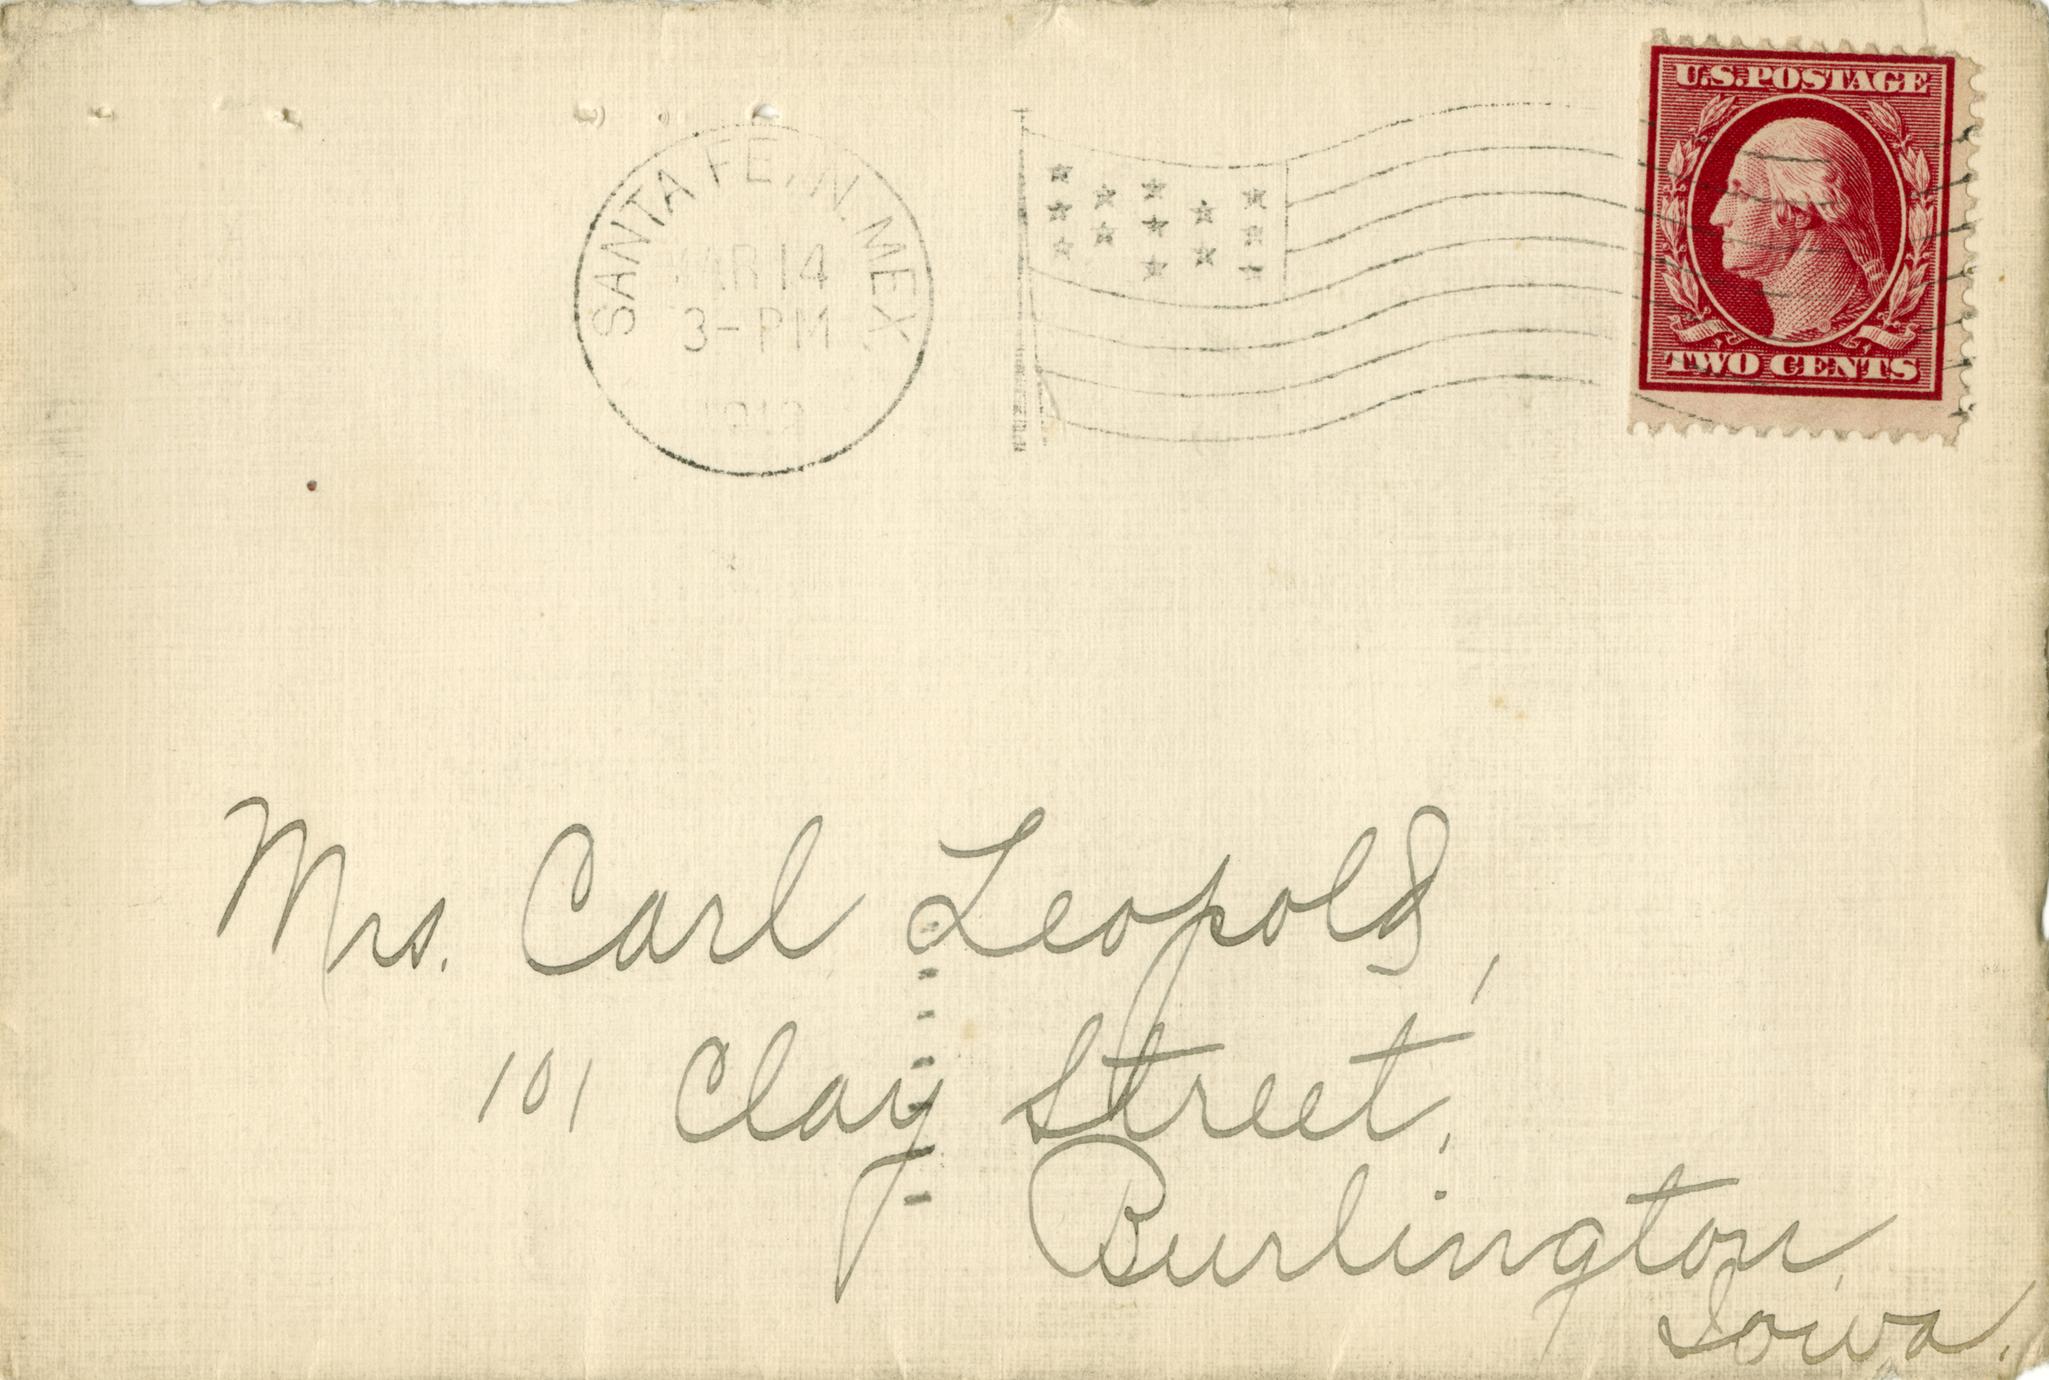 SANTA FE, N. MEX
MAR 14
3-PM
U.S. POSTAGE
TWO CENTS
Mrs. Carl Leopold,
101 Clay Street,
Burlington,
Iowa.